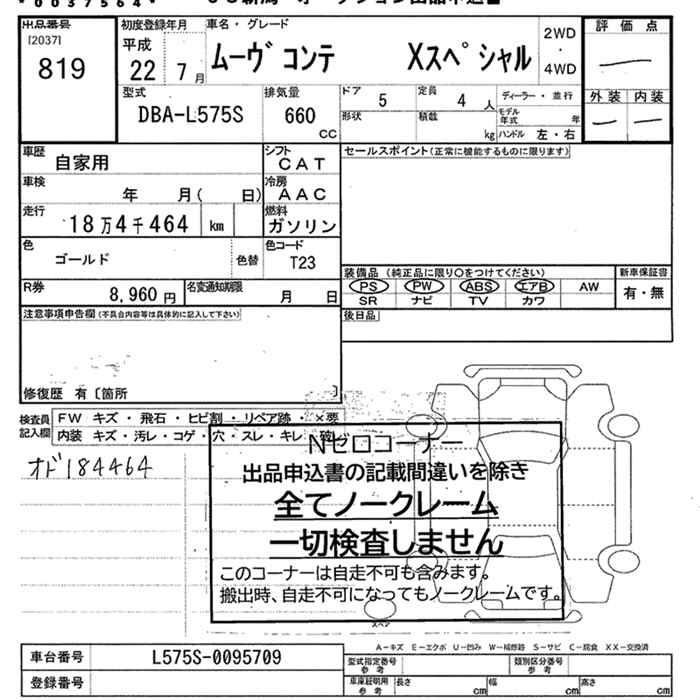 *0037564*
出品番号 [2037]
819
初度登録年月 平成 22年 7月
車名・グレード ムーヴ コンテ Xスペシャル
2WD ・ 4WD
評価点
外装 内装
型式 DBA-L575S
排気量 660 CC
ドア 5
定員 4 人
ディーラー・並行
形状
積載 kg
モデル年式 年
ハンドル 左・右
車歴 自家用
シフト CAT
車検 年 月( 日)
冷房 AAC
走行 18万4千464 km
燃料 ガソリン
色 ゴールド 色替
色コード T23
R券 8,960円
名変通知期限 月 日
セールスポイント(正常に機能するものに限ります)
装備品 (純正品に限り○をつけてください)
PS PW ABS エアB AW
SR ナビ TV カワ
新車保証書 有・無
後日品
注意事項申告欄 (不具合内容等は具体的に記入して下さい)
修復歴 有〔箇所 〕
検査員記入欄
FW キズ・飛石・ヒビ割・リペア跡・×要
内装 キズ・汚レ・コゲ・穴・スレ・キレ
オド184464
Nゼロコーナー
出品申込書の記載間違いを除き
全てノークレーム
一切検査しません
このコーナーは自走不可も含みます。
搬出時、自走不可になってもノークレームです。
スペア
A－キズ E－エクボ U－凹み W－補修跡 S－サビ C－腐食 XX－交換済
車台番号 L575S-0095709
登録番号
型式指定番号 参考
類別区分番号 参考
車庫証明用 参考 長さ cm 幅 cm 高さ cm